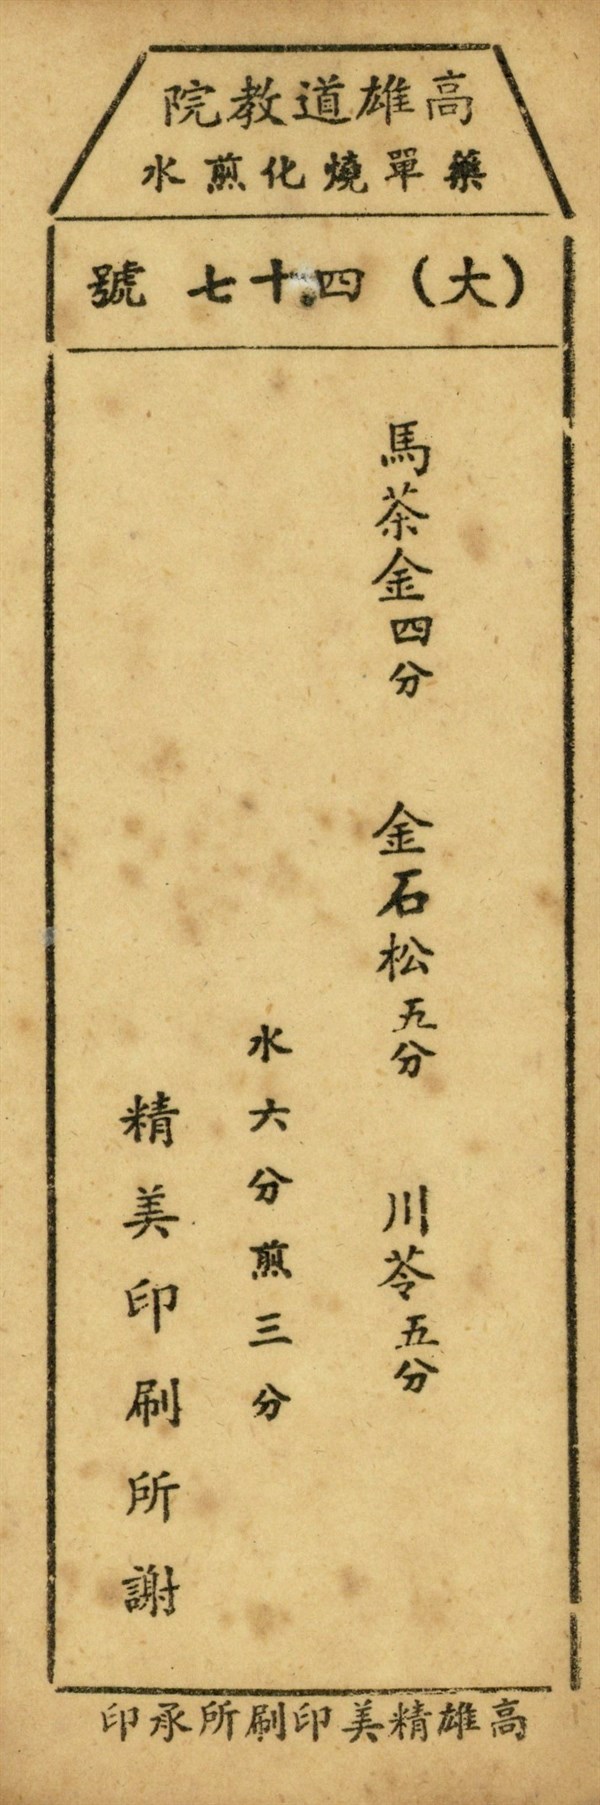 高雄道教院
藥單燒化煎水
（大）四十七號
馬茶金四分　金石松五分　川苓五分
水六分煎三分
精美印刷所謝
高雄精美印刷所承印